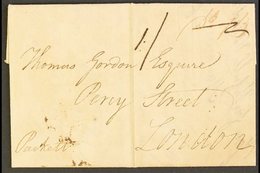 Thomas Gordon Esquire
Percy Street
London
Packett